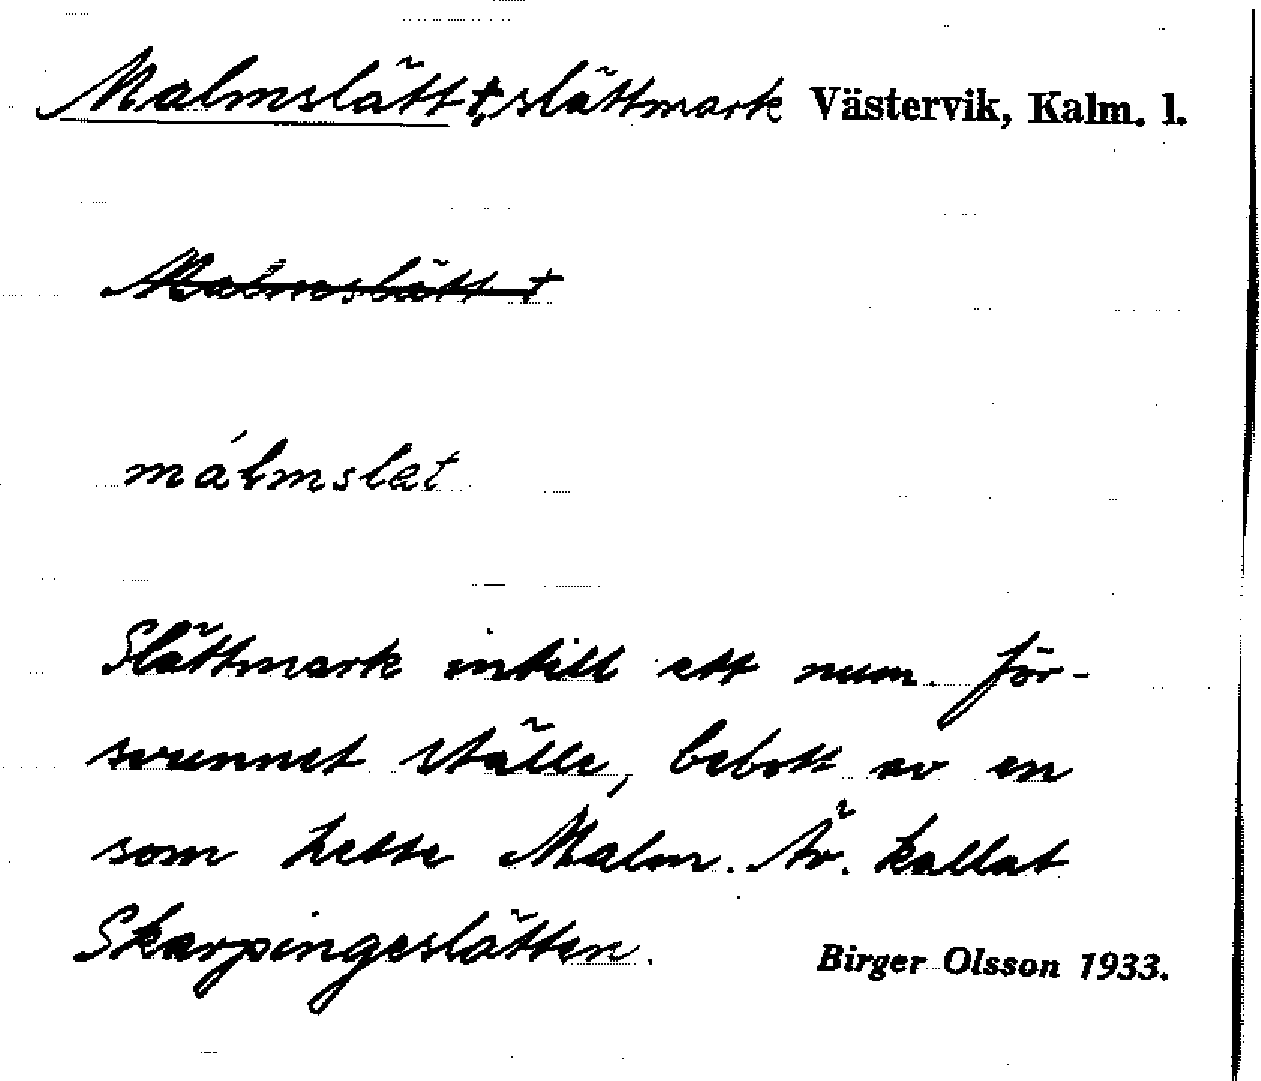 Malmslätt †, slättmark Västervik, Kalm. l.
Malmslätt †
málmslet
Slättmark intill ett num. för-
svunnet ställe, bebott av en
som hette Malm. Äv. kallat
Skarpingeslätten.
Birger Olsson 1933.